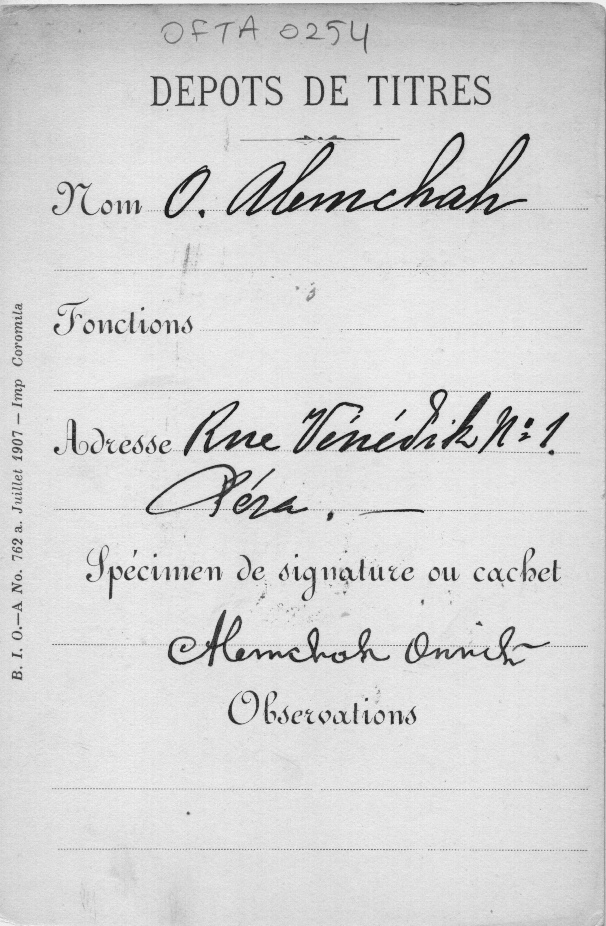 OFTA 0254
DEPOTS DE TITRES
Nom O. Alemchah
Fonctions
Adresse Rue Vénédik No 1.
Péra. —
Spécimen de signature ou cachet
Alemchah Onnik
Observations
B. I. O.—A No. 762 a. Juillet 1907 — Imp Coromila